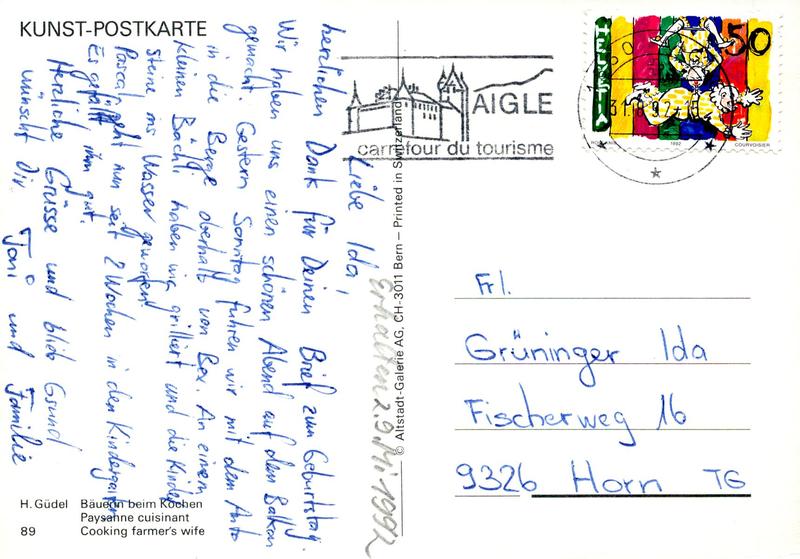 KUNST-POSTKARTE
Liebe Ida!
herzlichen Dank für Deinen Brief zum Geburtstag.
Wir haben uns einen schönen Abend auf dem Balkon
gemacht. Gestern Sonntag fuhren wir mit dem Auto
in die Berge oberhalb von Bex. An einem
kleinen Bächli haben wir grilliert und die Kinder
Steine ins Wasser geworfen!
Pascal geht nun seit 2 Wochen in den Kindergarten
Es gefällt ihm gut.
Herzliche Grüsse und blib Gsund
wünscht Dir Toni und Familie
H. Güdel Bäuerin beim Kochen
Paysanne cuisinant
89 Cooking farmer's wife
Erhalten 2.9. Mi 1992
© Altstadt-Galerie AG, CH-3011 Bern – Printed in Switzerland
AIGLE
carrefour du tourisme
HELVETIA
50
1992
COURVOISIER
Frl.
Grüninger Ida
Fischerweg 16
9326 Horn TG